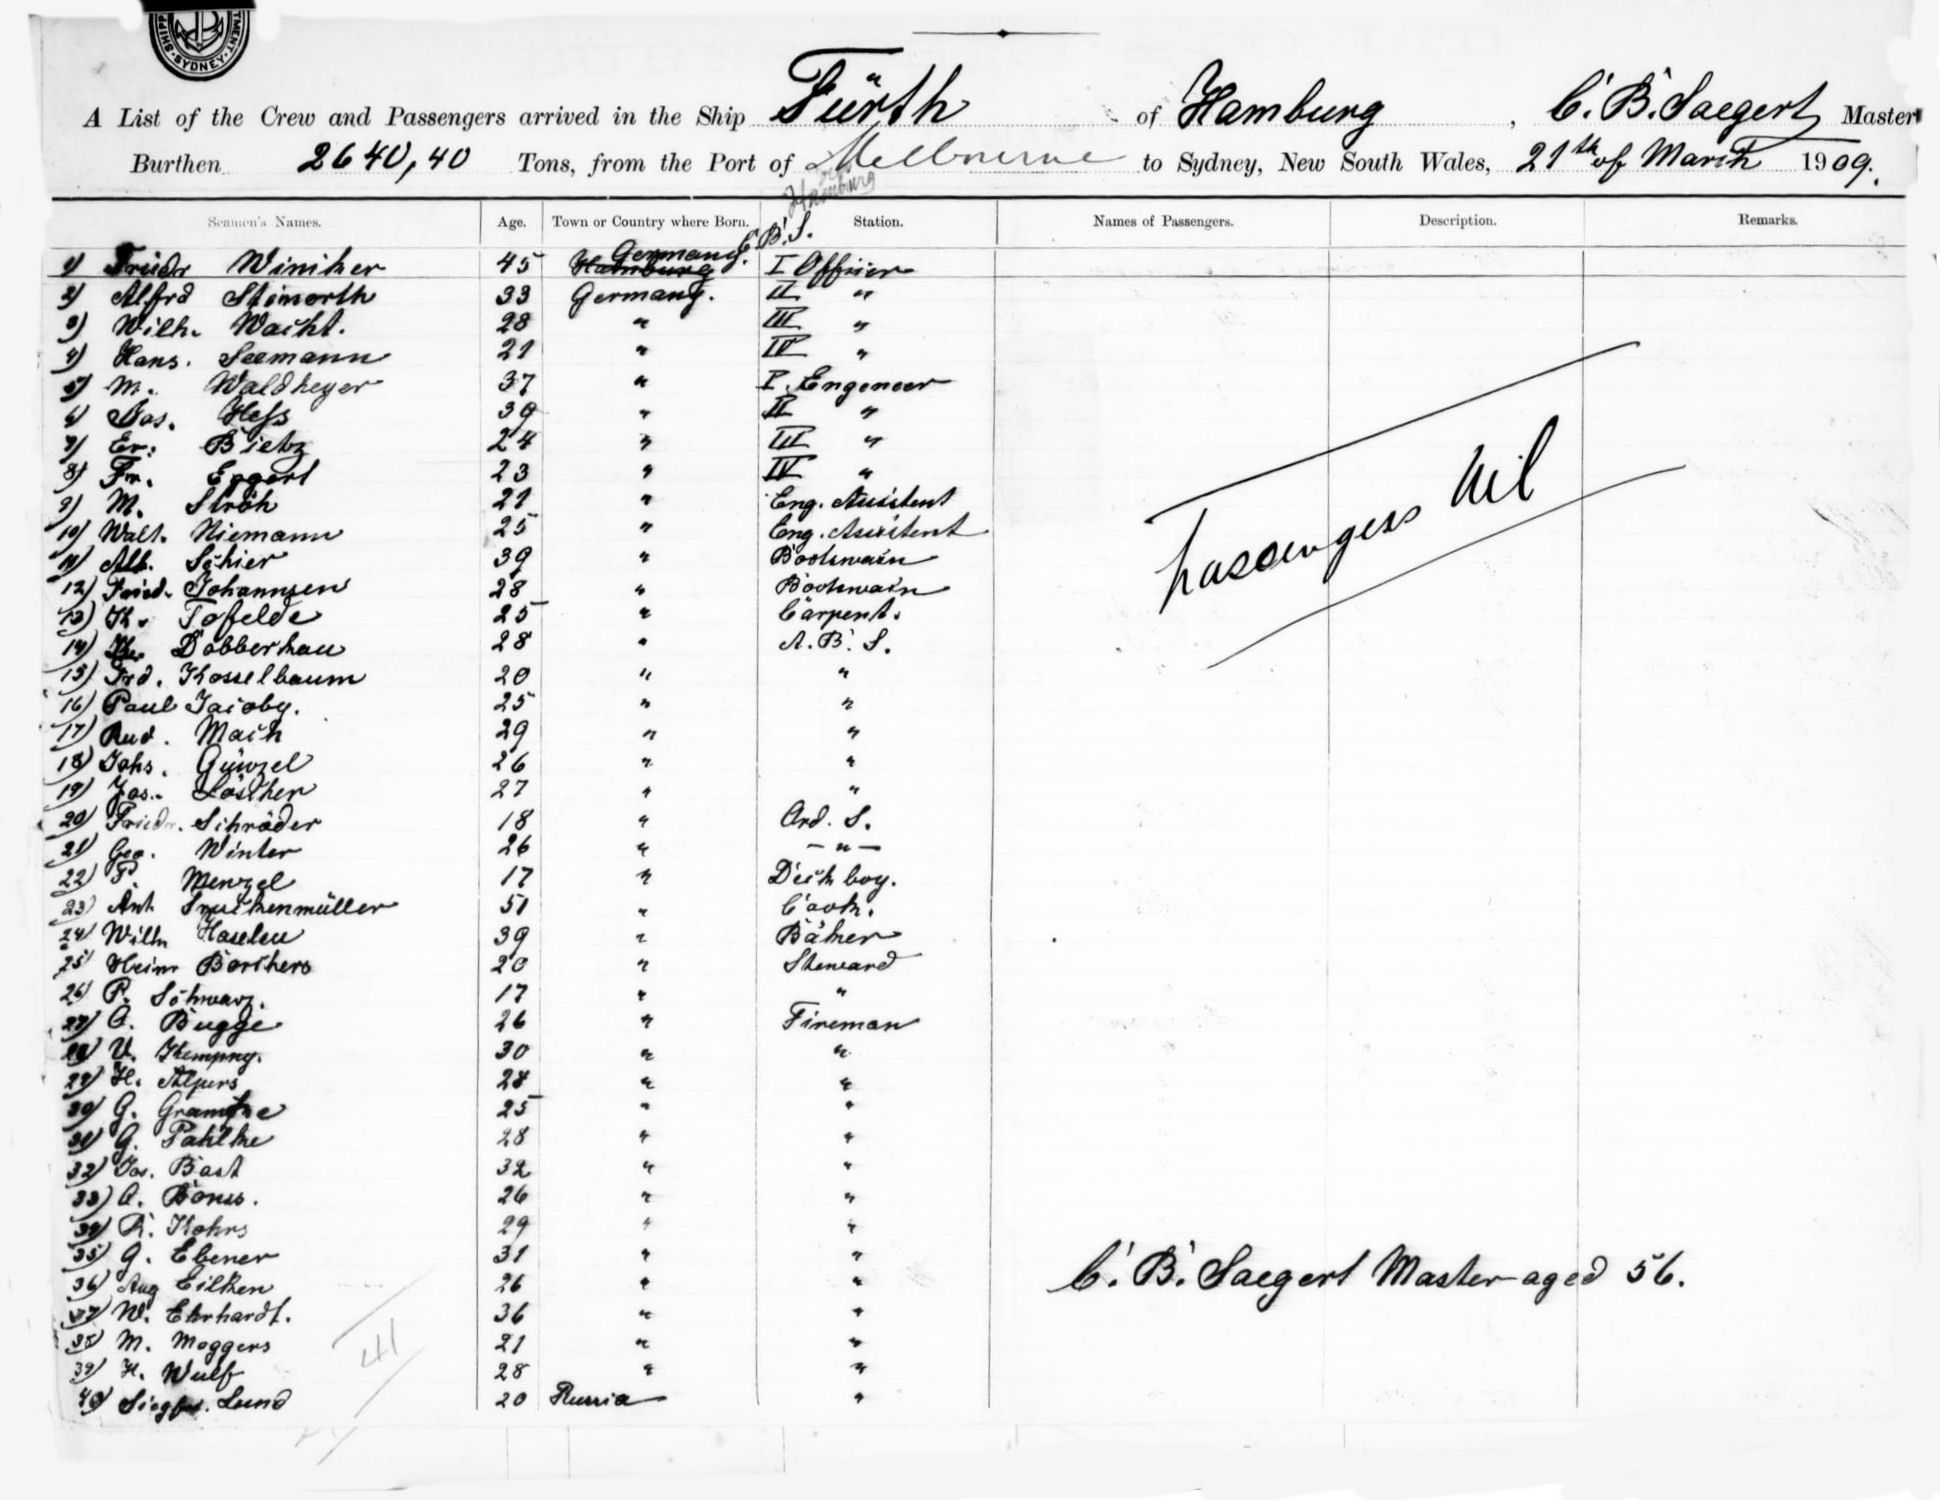 SYDNEY
A List of the Crew and Passengers arrived in the Ship Fürth of Hamburg, C. B. Saegert Master
Burthen 2640,40 Tons, from the Port of Melbourne to Sydney, New South Wales, 21th of March 1909.
Hamburg
Seamen's Names. Age. Town or Country where Born. Station. Names of Passengers. Description. Remarks.
C. B. S.
Germany.
1) Friedr Winther 45 Hamburg I Officer
2) Alfrd 33 Germany. II "
3) Wilh. Wacht. 28 " III "
4) Hans. Seemann 21 " IV "
5) M. Waldheyer 37 " I. Engeneer
6) Jos. Hess 39 " II "
7) Er. Bietz 24 " III "
8) Fr. Eggert 23 " IV "
9) M. Ströh 21 " Eng. Assistent
10) Walt. Niemann 25 " Eng. Assistent
11) Alb. Schier 39 " Bootswain
12) Fried. Johannsen 28 " Bootswain
13) Tofelde 25 " Carpent.
14) Dobberkau 28 " A. B. S.
15) Frd. Kosselbaum 20 " "
16) Paul Jacoby. 25 " "
17) Rud. Mach 29 " "
18) Johs. Günzel 26 " "
19) Jos. Löscher 27 " "
20) Friedr. Schröder 18 " Ord. S.
21) Geo. Winter 26 " – " –
22) Menzel 17 " Deck boy.
23) Ant 51 " Cook.
24) Wilh Haselen 39 " Bäker
25) Heinr Borchers 20 " Steward
26) P. Schwarz. 17 " "
27) O. Bugge 26 " Fireman
28) V. Kempny. 30 " "
29) H. Alpers 28 " "
30) G. Gramtze 25 " "
31) G. Pahlke 28 " "
32) Jos. Bast 32 " "
33) O. Borus. 26 " "
34) R. Kohrs 29 " "
35) G. Ebener 31 " "
36) Aug Eilken 26 " "
37) W. Ehrhardt. 36 " "
38) M. Moggers 21 " "
39) H. Wulf 28 " "
40) Siegfr. Lund 20 Russia "
41
Passengers Nil
C. B. Saegert Master aged 56.